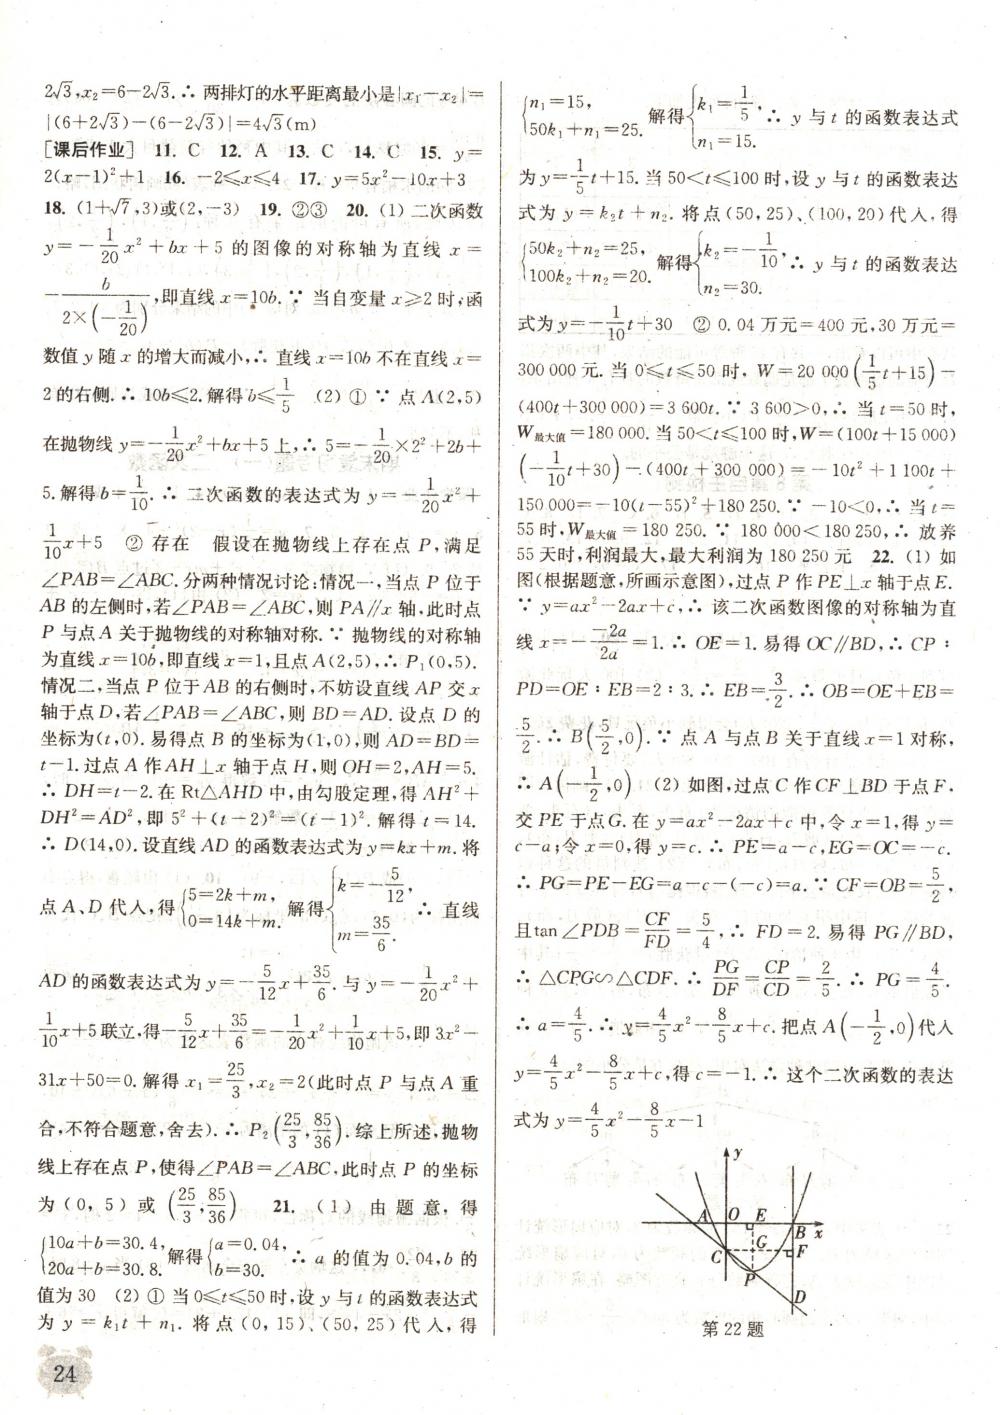 2√3,x₂=6−2√3.∴ 两排灯的水平距离最小是|x₁−x₂|=
|(6+2√3)−(6−2√3)|=4√3(m)
[课后作业] 11. C 12. A 13. C 14. C 15. y=
2(x−1)²+1 16. −2⩽x⩽4 17. y=5x²−10x+3
18. (1+√7,3)或(2,−3) 19. ②③ 20. (1) 二次函数
y=−1/20x²+bx+5 的图像的对称轴为直线 x=
−b/(2×(−1/20)),即直线 x=10b.∵ 当自变量 x⩾2 时,函
数值 y 随 x 的增大而减小,∴ 直线 x=10b 不在直线 x=
2 的右侧.∴ 10b⩽2.解得 b⩽1/5 (2) ① ∵ 点 A(2,5)
在抛物线 y=−1/20x²+bx+5 上,∴ 5=−1/20×2²+2b+
5.解得 b=1/10.∴ 二次函数的表达式为 y=−1/20x²+
1/10x+5 ② 存在 假设在抛物线上存在点 P,满足
∠PAB=∠ABC.分两种情况讨论:情况一,当点 P 位于
AB 的左侧时,若∠PAB=∠ABC,则 PA∥x 轴,此时点
P 与点 A 关于抛物线的对称轴对称.∵ 抛物线的对称轴
为直线 x=10b,即直线 x=1,且点 A(2,5),∴ P₁(0,5).
情况二,当点 P 位于 AB 的右侧时,不妨设直线 AP 交 x
轴于点 D,若∠PAB=∠ABC,则 BD=AD. 设点 D 的
坐标为(t,0).易得点 B 的坐标为(1,0),则 AD=BD=
t−1.过点 A 作 AH⊥x 轴于点 H,则 OH=2,AH=5.
∴ DH=t−2.在 Rt△AHD 中,由勾股定理,得 AH²+
DH²=AD²,即 5²+(t−2)²=(t−1)².解得 t=14.
∴ D(14,0).设直线 AD 的函数表达式为 y=kx+m.将
点 A、D 代入,得{5=2k+m,0=14k+m.解得{k=−5/12,m=35/6.∴ 直线
AD 的函数表达式为 y=−5/12x+35/6.与 y=−1/20x²+
1/10x+5 联立,得−5/12x+35/6=−1/20x²+1/10x+5,即 3x²−
31x+50=0.解得 x₁=25/3,x₂=2(此时点 P 与点 A 重
合,不符合题意,舍去).∴ P₂(25/3,85/36).综上所述,抛物
线上存在点 P,使得∠PAB=∠ABC,此时点 P 的坐标
为(0,5)或(25/3,85/36) 21. (1) 由题意,得
{10a+b=30.4,20a+b=30.8.解得{a=0.04,b=30.∴ a 的值为 0.04,b 的
值为 30 (2) ① 当 0⩽t⩽50 时,设 y 与 t 的函数表达式
为 y=k₁t+n₁. 将点(0,15)、(50,25)代入,得
{n₁=15,50k₁+n₁=25.解得{k₁=1/5,n₁=15.∴ y 与 t 的函数表达式
为 y=1/5t+15.当 50<t⩽100 时,设 y 与 t 的函数表达
式为 y=k₂t+n₂. 将点(50,25)、(100,20)代入,得
{50k₂+n₂=25,100k₂+n₂=20.解得{k₂=−1/10,n₂=30.∴ y 与 t 的函数表达
式为 y=−1/10t+30 ② 0.04 万元=400 元,30 万元=
300 000 元. 当 0⩽t⩽50 时, W=20 000(1/5t+15)−
(400t+300 000)=3 600t.∵ 3 600>0,∴ 当 t=50 时,
W最大值=180 000. 当 50<t⩽100 时,W=(100t+15 000)
(−1/10t+30)−(400t+300 000)=−10t²+1 100t+
150 000=−10(t−55)²+180 250.∵ −10<0,∴ 当 t=
55 时,W最大值=180 250.∵ 180 000<180 250,∴ 放养
55 天时,利润最大,最大利润为 180 250 元 22. (1) 如
图(根据题意,所画示意图),过点 P 作 PE⊥x 轴于点 E.
∵ y=ax²−2ax+c,∴ 该二次函数图像的对称轴为直
线 x=−−2a/2a=1.∴ OE=1.易得 OC∥BD,∴ CP∶
PD=OE∶EB=2∶3.∴ EB=3/2.∴ OB=OE+EB=
5/2.∴ B(5/2,0).∵ 点 A 与点 B 关于直线 x=1 对称,
∴ A(−1/2,0) (2) 如图,过点 C 作 CF⊥BD 于点 F,
交 PE 于点 G.在 y=ax²−2ax+c 中,令 x=1,得 y=
c−a;令 x=0,得 y=c.∴ PE=a−c,EG=OC=−c.
∴ PG=PE−EG=a−c−(−c)=a.∵ CF=OB=5/2,
且tan ∠PDB=CF/FD=5/4,∴ FD=2.易得 PG∥BD,
∴ △CPG∽△CDF.∴ PG/DF=CP/CD=2/5.∴ PG=4/5.
∴ a=4/5.∴ y=4/5x²−8/5x+c.把点 A(−1/2,0)代入
y=4/5x²−8/5x+c,得 c=−1.∴ 这个二次函数的表达
式为 y=4/5x²−8/5x−1
y
A O E B x
C G F
P
D
第 22 题
24